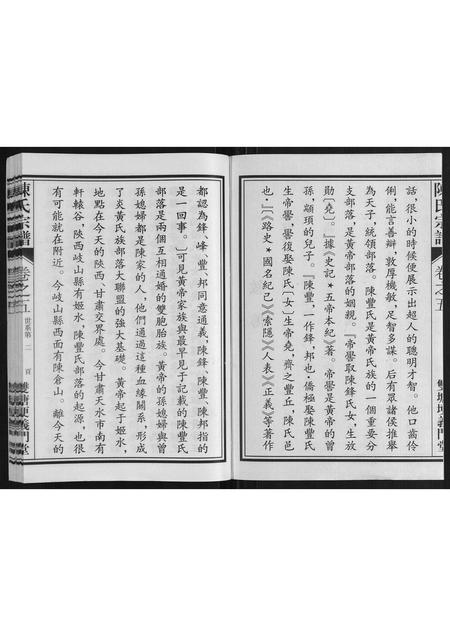 陳氏宗譜
卷之五
雙塘埂義門堂
話，很小的時候便展示出超人的聰明才智。他口齒伶
俐，能言善辯，敦厚機敏，足智多謀。后有眾諸侯推舉
為天子，統領部落。陳豐氏是黃帝氏族的一個重要分
支部落，是黃帝部落的姻親。「帝嚳取陳鋒氏女，生放
勛〔堯〕。」據《史記★五帝本紀》著。帝嚳是黃帝的曾
孫，顓頊的兒子。『陳豐，一作鋒，邦也。僑極娶陳豐氏
生帝嚳，嚳復娶陳氏〔女〕生帝堯，齊之豐丘，陳氏邑
也。』〔《路史★國名紀己》《索隱》《人表》《正義》等著作
都認為鋒、峰、豐、邦同意通義，陳鋒、陳豐、陳邦指的
是一回事。〕可見黃帝家族與最早見于記載的陳豐氏
部落是兩個互相通婚的雙胞胎族。黃帝的孫媳婦與曾
孫媳婦都是陳家的人，他們通過這種血緣關系，形成
了炎黃氏族部落大聯盟的強大基礎。黃帝起于姬水，
地點在今天的陝西、甘肅交界處。今甘肅天水市南有
軒轅谷，陝西岐山縣有姬水，陳豐氏部落的起源，也很
有可能就在附近。今岐山縣西面有陳倉山。離今天的
陳氏宗譜
卷之五
世系第二頁
雙塘埂義門堂